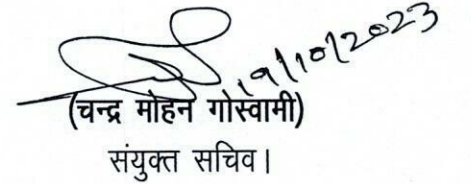 19/10/2023
(चन्द्र मोहन गोस्वामी)
संयुक्त सचिव।